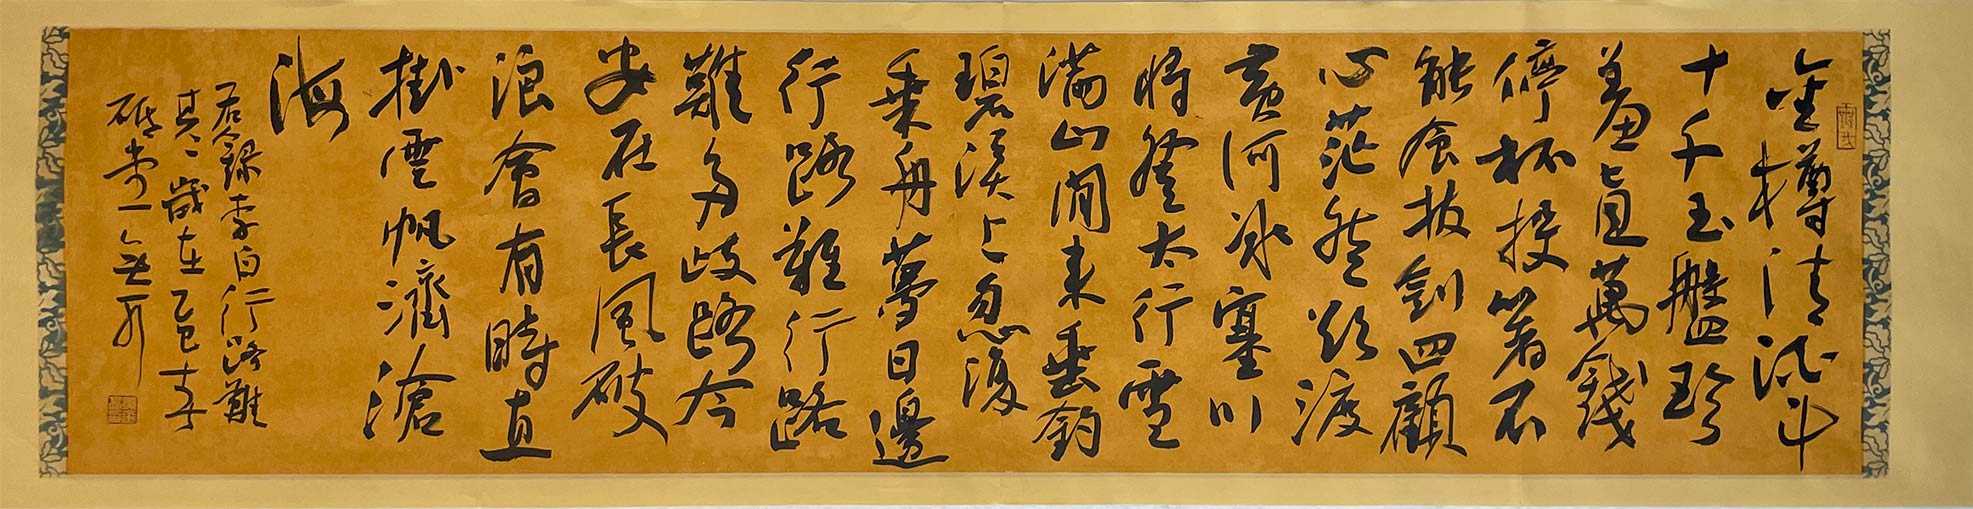 金樽清酒斗
十千玉盤珍
羞直萬錢
停杯投箸不
能食拔劍四顧
心茫然欲渡
黃河冰塞川
將登太行雪
滿山閒來垂釣
碧溪上忽復
乘舟夢日邊
行路難行路
難多歧路今
安在長風破
浪會有時直
掛雲帆濟滄
海
右錄李白行路難
其一歲在乙巳春